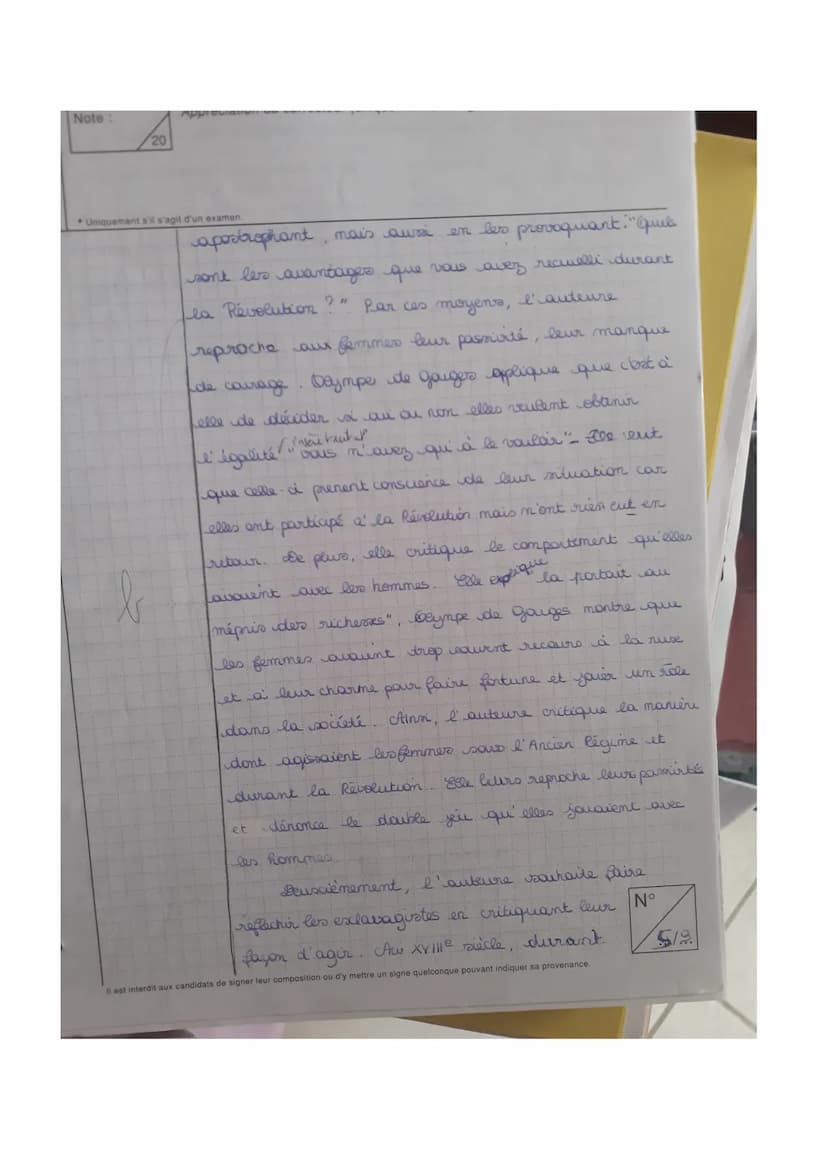 Note :
/20
* Uniquement s'il s'agit d'un examen.
apostrophant, mais aussi en les provoquant : "Quels
sont les avantages que vous avez recueilli durant
la Révolution ?" Par ces moyens, l'auteure
reproche aux femmes leur passivité, leur manque
de courage. Olympe de Gouges applique que c'est à
elle de décider si au ou non elles veulent obtenir
l'égalité "vous n'avez qu'à le vouloir" - Elle veut
que celle-ci prenent conscience de leur situation car
elles ont participé à la Révolution mais n'ont rien eut en
retour. De plus, elle critique le comportement qu'elles
avaient avec les hommes. Elle explique la portait au
mépris des richesses", Olympe de Gouges montre que
les femmes avaient trop souvent recours à la ruse
et à leur charme pour faire fortune et jouer un rôle
dans la société. Ainsi, l'auteure critique la manière
dont agissaient les femmes sous l'Ancien Régime et
durant la Révolution. Elle leurs reproche leur passivités
et dénonce le double jeu qu'elles jouaient avec
les hommes.
Deuxièmement, l'auteure souhaite faire
réflechir les exlavagistes en critiquant leur
façon d'agir. Au XVIIIe siècle, durant
N°
5/9
Il est interdit aux candidats de signer leur composition ou d'y mettre un signe quelconque pouvant indiquer sa provenance.